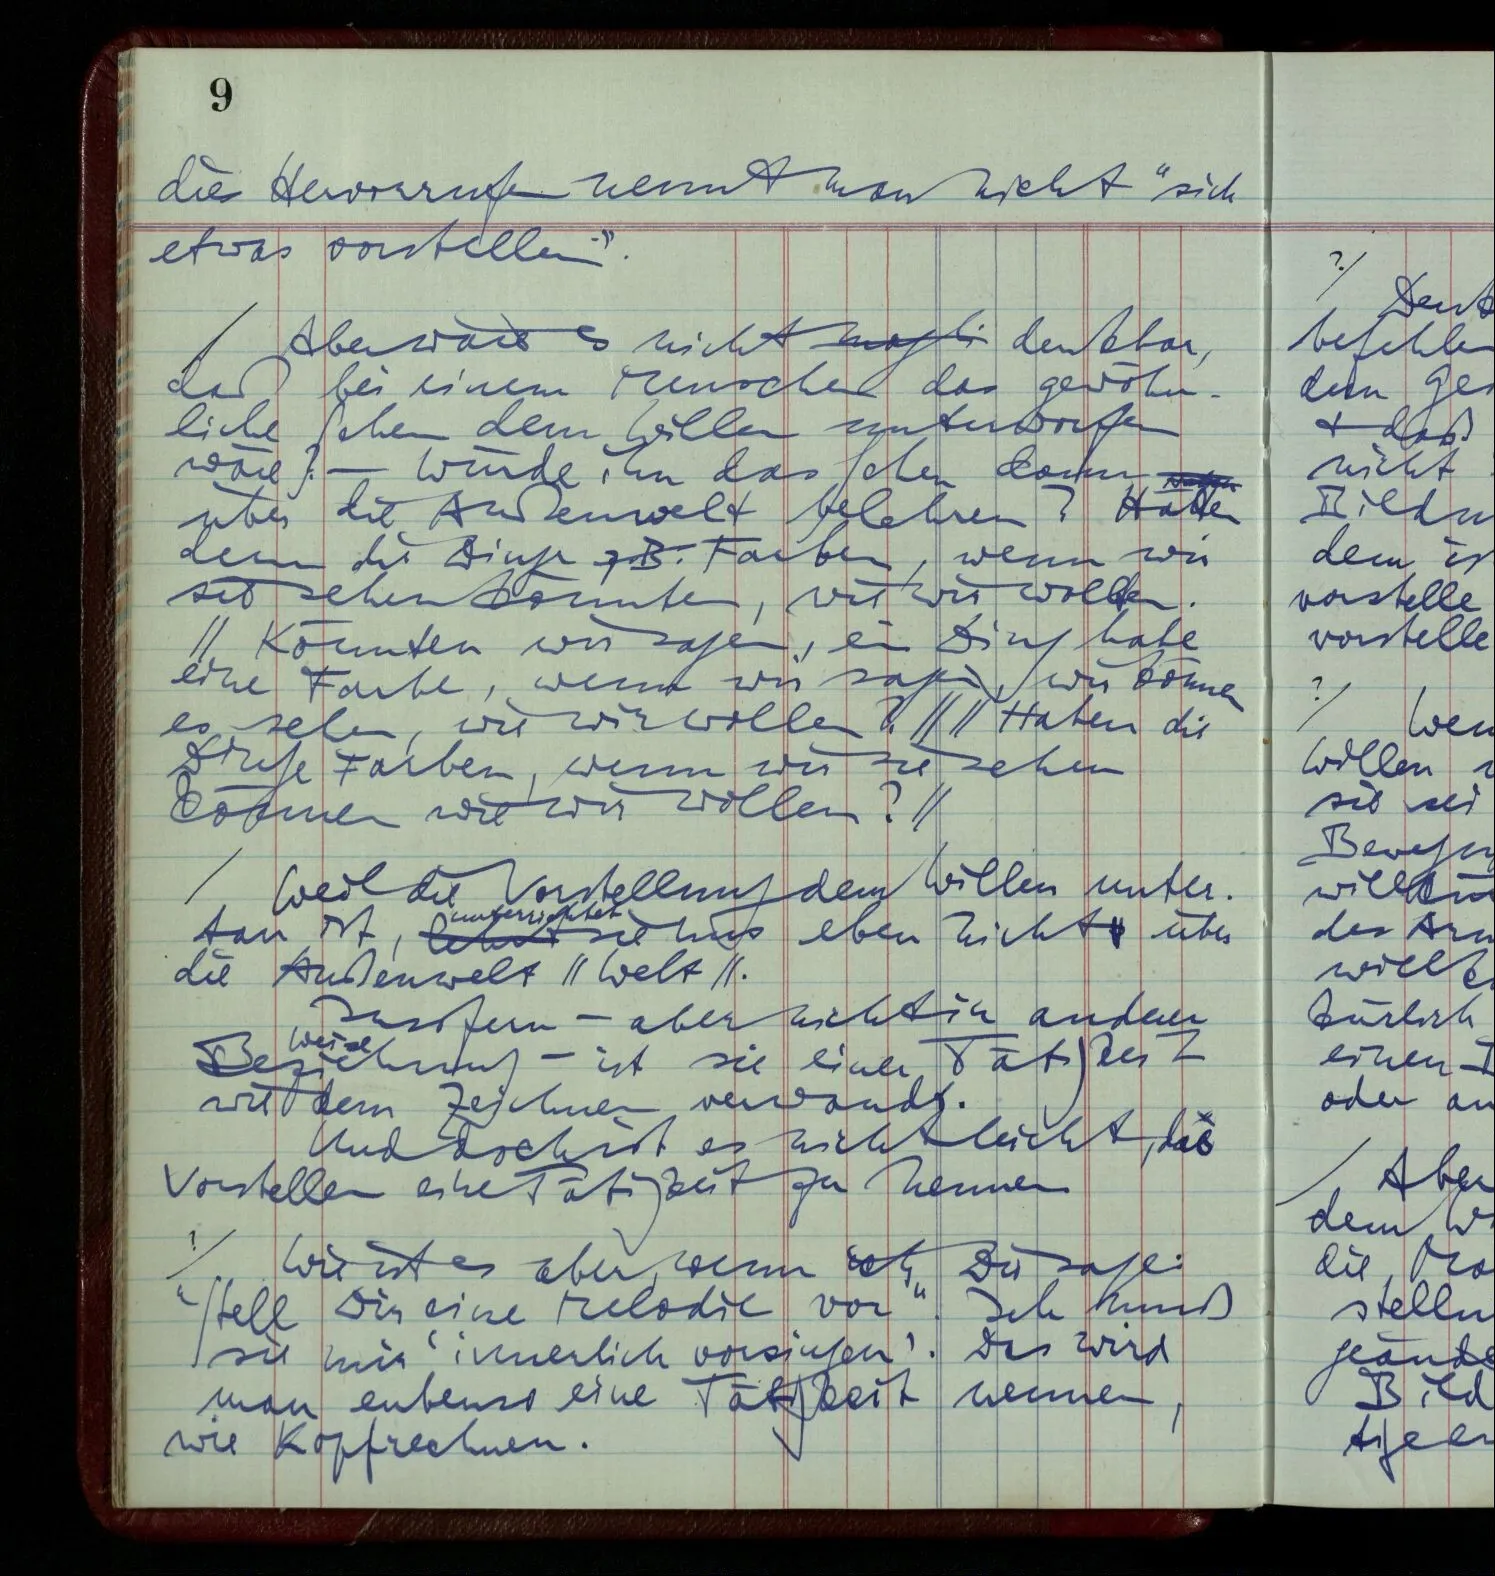 9
dies Hervorrufen nennt man nicht "sich
etwas vorstellen".
/ Aber wäre es nicht mögli denkbar,
daß bei einem Menschen das gewöhn-
liche Sehen dem Willen unterworfen
wäre? — Würde ihn das Sehen dann
über die Außenwelt belehren? Hätten
denn die Dinge z.B. Farben, wenn wir
sie sehen könnten, wie wir wollten.
// Könnten wir sagen, ein Ding habe
eine Farbe, wenn wir sagen, wir können
es sehen, wie wir wollen? // // Haben die
Dinge Farben, wenn wir sie sehen
können wie wir wollen? //
/ Weil die Vorstellung dem Willen unter-
tan ist, lehrt unterrichtet sie uns eben nicht über
die Außenwelt // Welt //.
Insofern – aber nicht in anderer
Beziehung weise – ist sie einer Tätigkeit
wie dem Zeichnen verwandt.
Und doch ist es nicht leicht, das
Vorstellen eine Tätigkeit zu nennen
?/ Wie ist es aber, wenn ich Dir sage:
"Stell Dir eine Melodie vor". Ich muß
sie mir 'innerlich vorsingen'. Das wird
man ebenso eine Tätigkeit nennen,
wie Kopfrechnen.
?/
befehlen
dem
+ daß
nicht
dem
vorstelle
vorstelle
?/
Willen
sie sei
des
einen
oder
/ Aber
dem
die
Bild